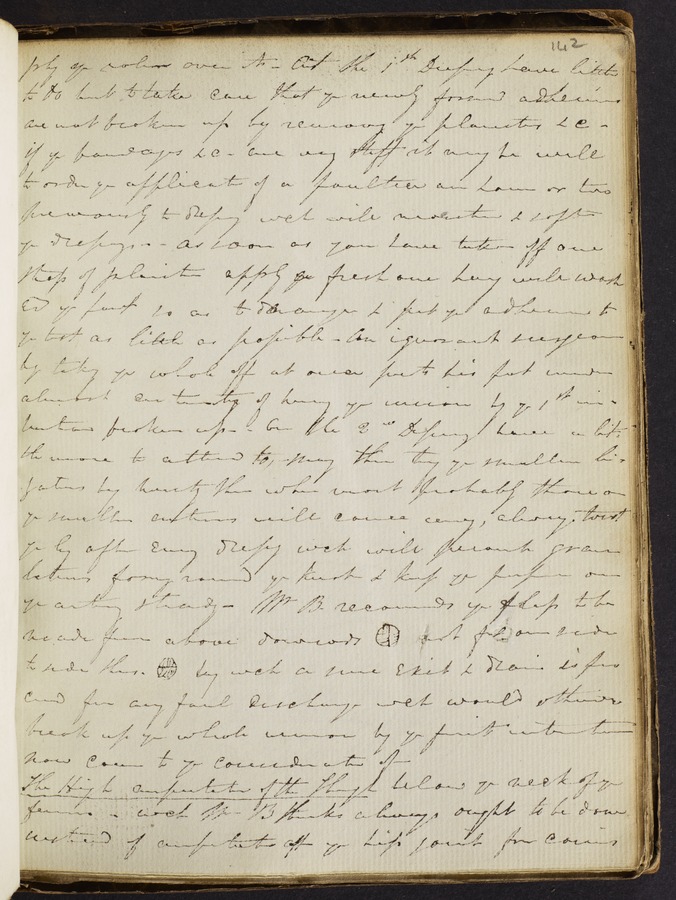 142
ply ye roller over it - At the 1st Dressing have little
to do but to take care that ye newly formed adhesions
are not broken up by removing ye plaister &c -
if ye bandages &c - are very stiff it may be well
to order ye applicat of a poultice an hour or two
previously to dressg wch will moisten & soften
ye dressings - as soon as you have taken off one
strap of plaister apply ye fresh one havg well wash
ed ye part so as to derange & put ye adhesions to
ye test as little as possible - An ignorant surgeon
by takg ye whole off at once puts his pat under
almost certainty of havg ye union by ye 1st in-
tention broken up - On the 2nd Dressg have a lit-
tle more to attend to, may then try ye smaller li-
gatures by them when most probably those on
ye smaller arteries will come away, always twist
ye lig after every dressg wch will prevent granu
lations formg round ye knot & keep ye on
ye artery steady - Mr B recommds ye flaps to be
made from above downwds not from side
to side thus. by wch a sure exit & drain is fro
and for any foul discharge wch would otherwise
break up ye whole union by ye first intention
now come to ye consideratn of
The High amputation of the Thigh below ye neck of ye
femur - wch Mr B thinks always ought to be done
instead of amputatg at ye hip joint for caries